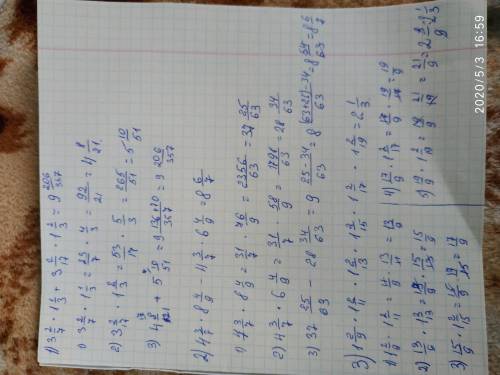 1) 3 2/7 · 1 1/3 + 3 2/17 · 1 2/3 = 9 206/357
1) 3 2/7 · 1 1/3 = 23/7 · 4/3 = 92/21 = 4 8/21
2) 3 2/17 · 1 2/3 = 53/17 · 5/3 = 265/51 = 5 10/51
3) 4 8/21 + 5 10/51 = 9 136+70/357 = 9 206/357
2) 4 3/7 · 8 4/9 - 4 3/7 · 6 4/9 = 8 6/7
1) 4 3/7 · 8 4/9 = 31/7 · 76/9 = 2356/63 = 37 25/63
2) 4 3/7 · 6 4/9 = 31/7 · 58/9 = 1798/63 = 28 34/63
3) 37 25/63 - 28 34/63 = 9 25-34/63 = 8 (63+25)-34/63 = 8 54/63 = 8 6/7
3) 1 2/9 · 1 2/11 · 1 2/13 · 1 2/15 · 1 2/17 · 1 2/19 = 2 1/3
1) 1 2/9 · 1 2/11 = 11/9 · 13/11 = 13/9
4) 17/9 · 1 2/17 = 17/9 · 19/17 = 19/9
2) 13/9 · 1 2/13 = 13/9 · 15/13 = 15/9
5) 19/9 · 1 2/19 = 19/9 · 21/19 = 21/9 = 2 3/9 = 2 1/3
3) 15/9 · 1 2/15 = 15/9 · 17/15 = 17/9
2020/5/3 16:59